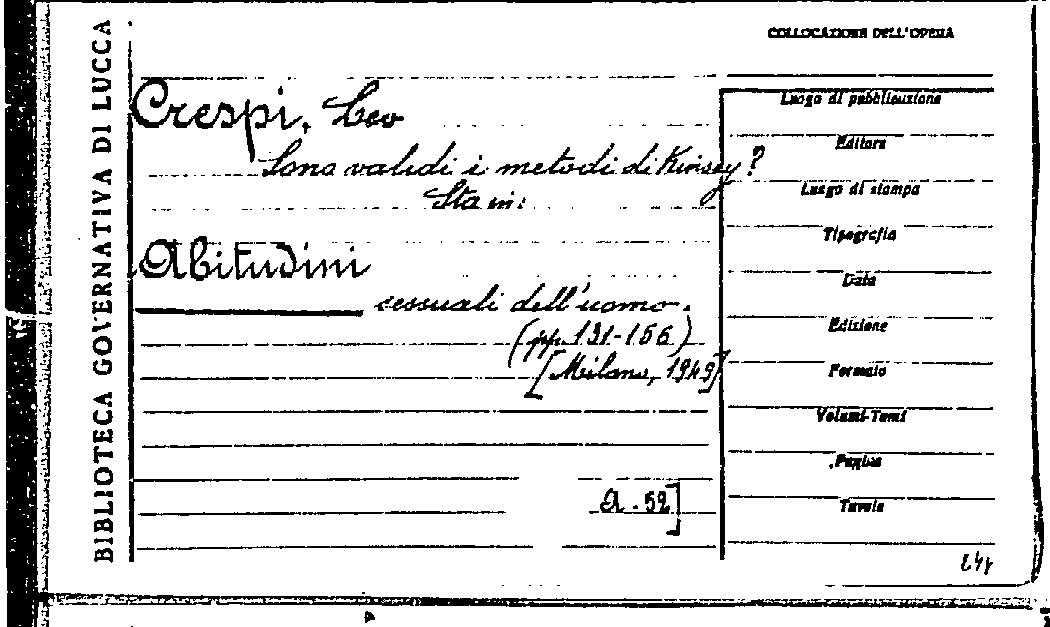 BIBLIOTECA GOVERNATIVA DI LUCCA
COLLOCAZIONE DELL'OPERA
Crespi, Leo
Sono validi i metodi di Kinsey?
Sta in:
Abitudini
sessuali dell'uomo.
(pp. 131-156)
[Milano, 1949]
A. 52]
Luogo di pubblicazione
Editore
Luogo di stampa
Tipografia
Data
Edizione
Formato
Volumi-Tomi
Pagine
Tavole